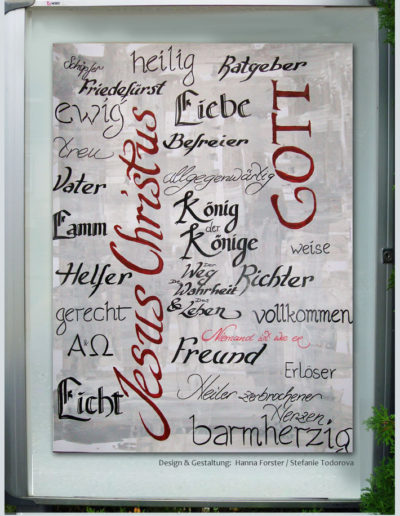 Schöpfer
heilig
Ratgeber
Friedefürst
ewig
Liebe
GOTT
Jesus Christus
treu
Befreier
Vater
allgegenwärtig
Lamm
König
der
Könige
weise
Helfer
Der
Weg
Die
Wahrheit
Das
& Leben
Richter
gerecht
vollkommen
Niemand ist wie er
A*Ω
Freund
Erlöser
Licht
Heiler zerbrochener
Herzen
barmherzig
Design & Gestaltung: Hanna Forster / Stefanie Todorova